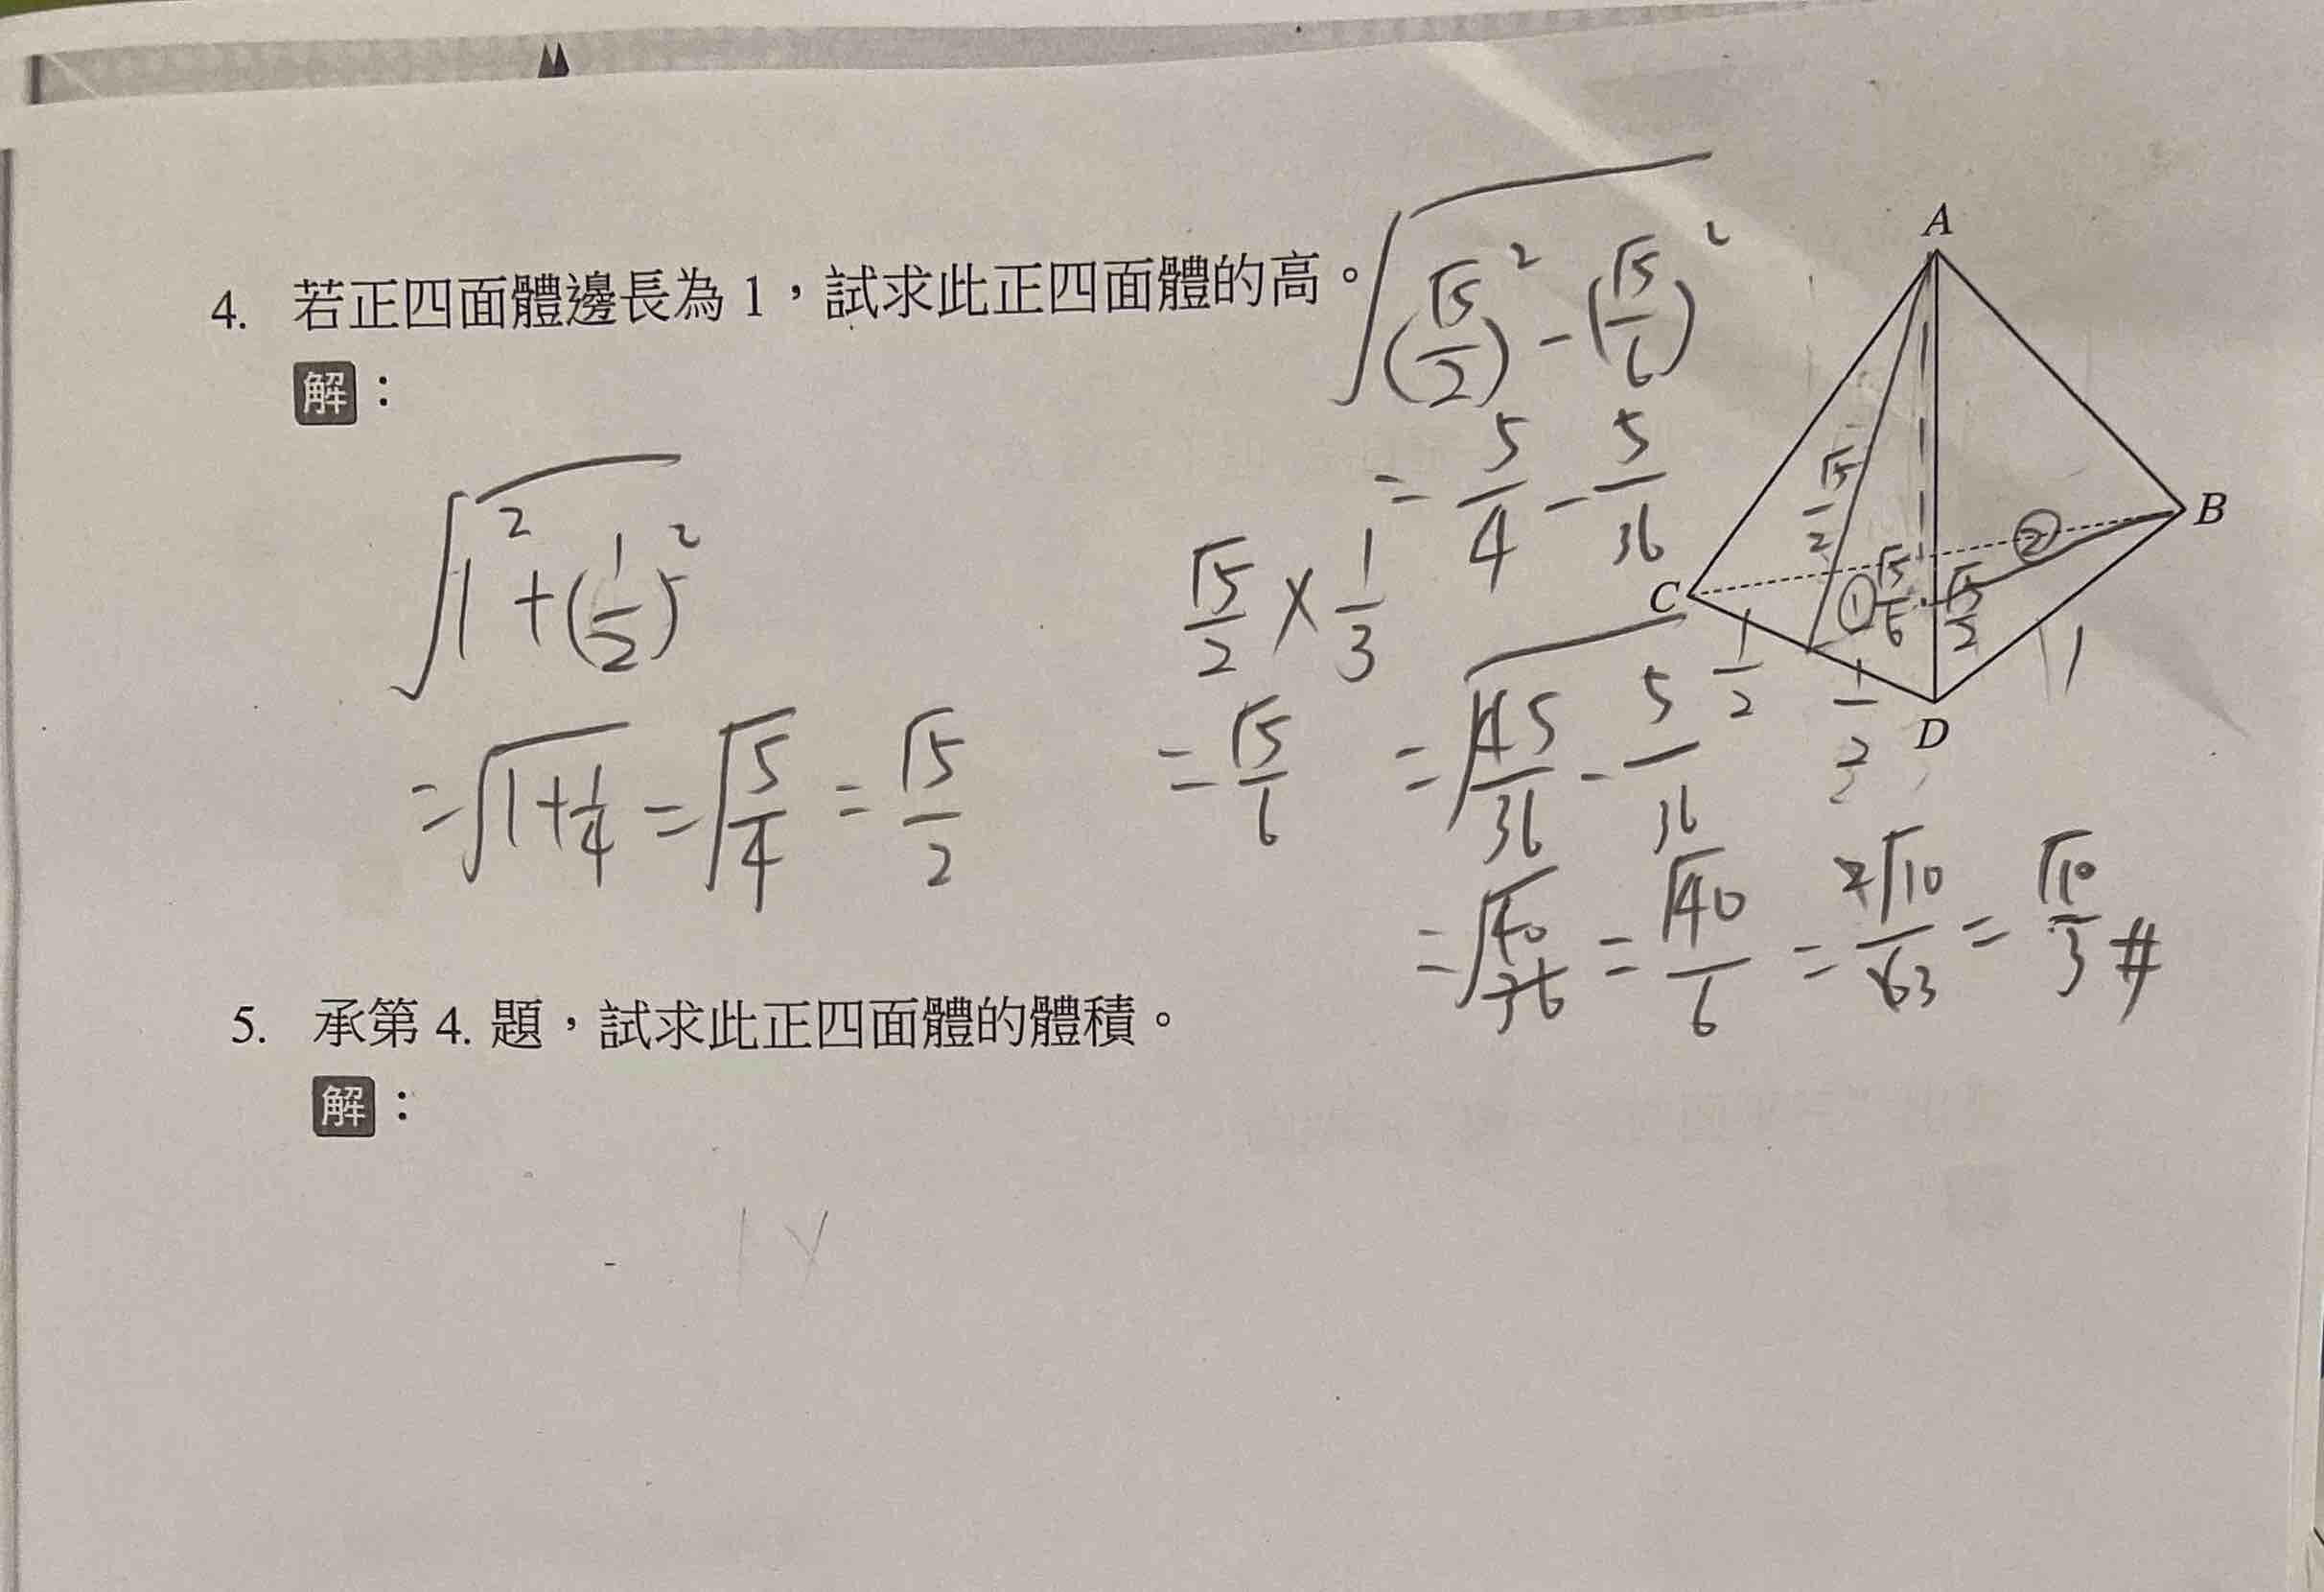 4. 若正四面體邊長為 1，試求此正四面體的高。
解：
√(1² + (1/2)²)
= √(1 + 1/4) = √(5/4) = √5/2
√5/2 × 1/3
= √5/6
√((√5/2)² − (√5/6)²)
= 5/4 − 5/36
= √(45/36 − 5/36)
= √(40/36) = √40/6 = 2√10/63 = √10/3 #
A
B
C
D
√5/2
①
√5/6
√5/2
②
1/2
1/2
1
5. 承第 4. 題，試求此正四面體的體積。
解：